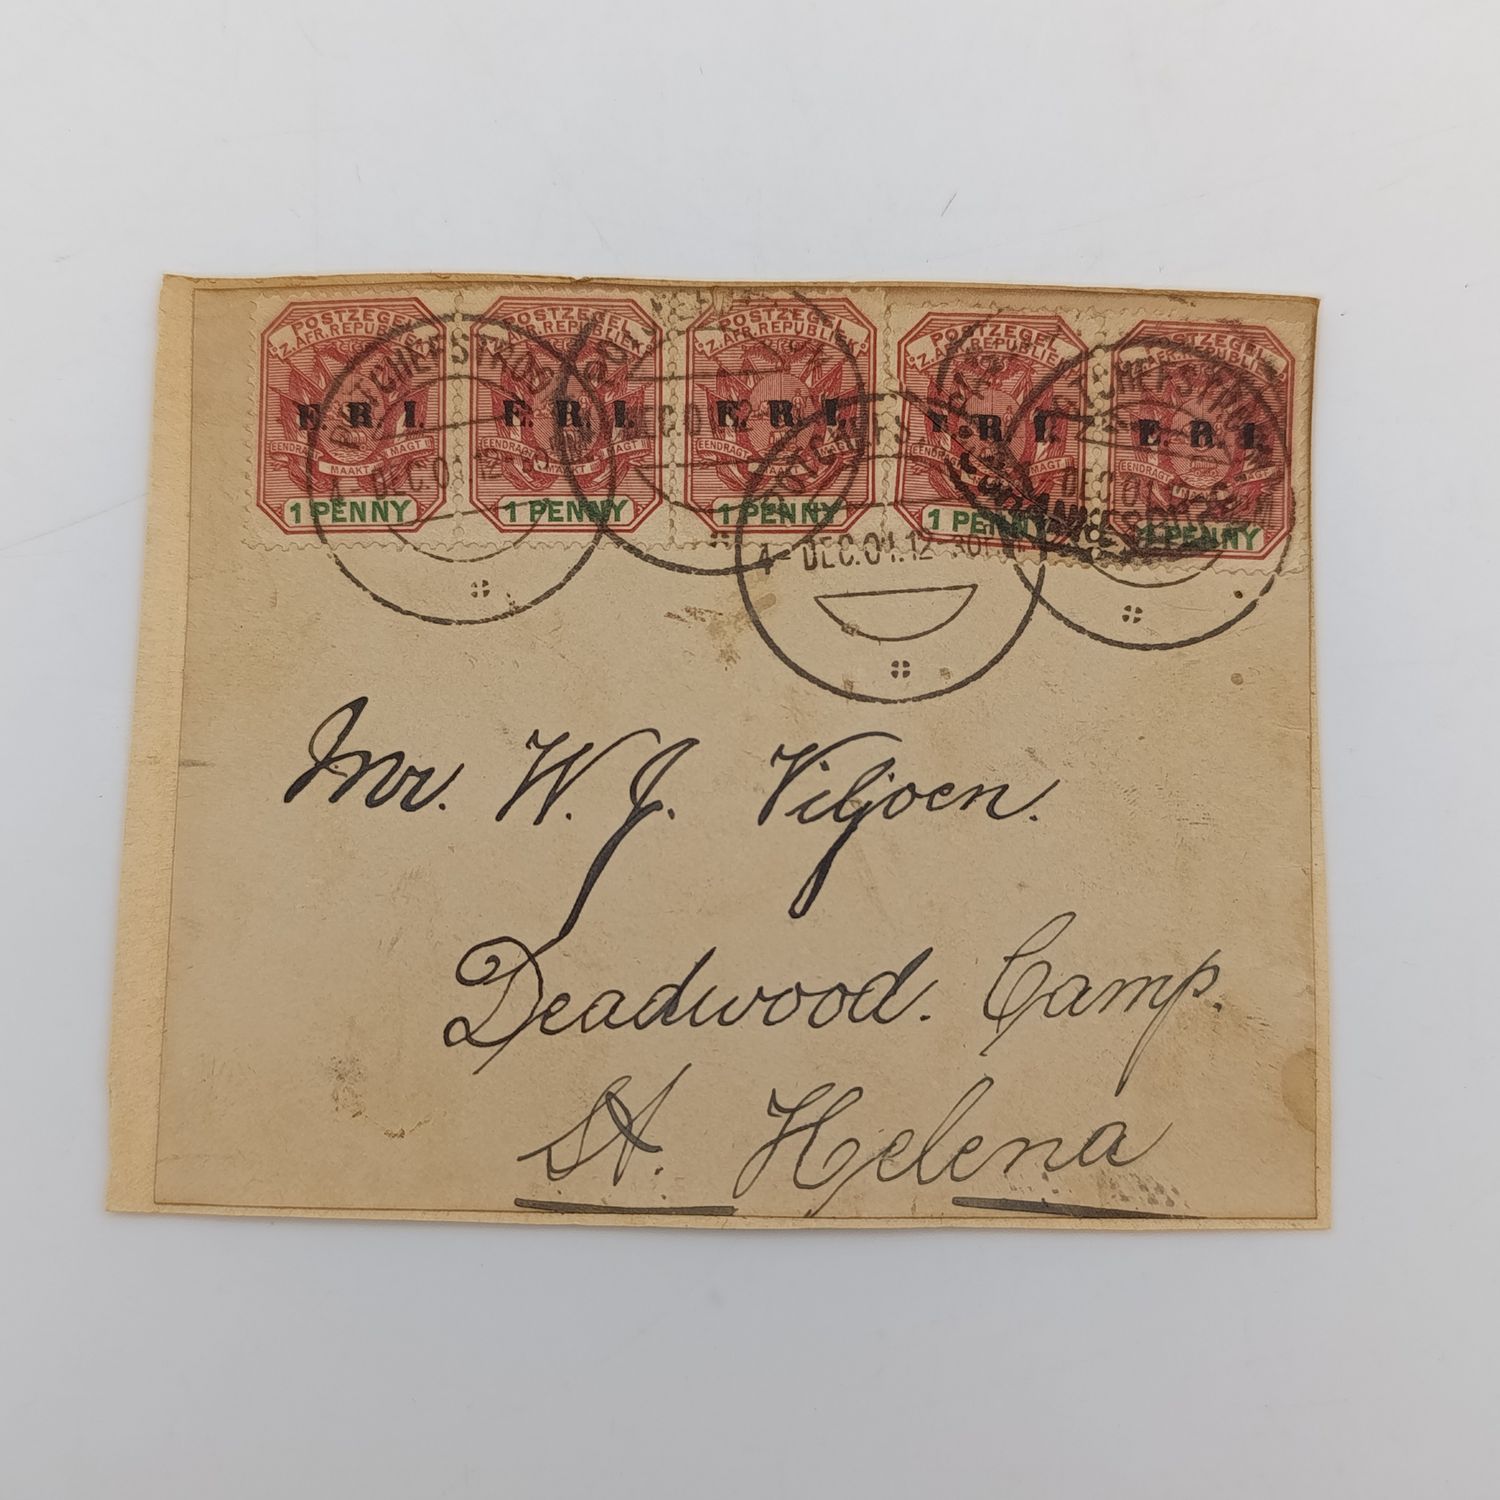 POSTZEGEL POSTZEGEL POSTZEGEL POSTZEGEL POSTZEGEL
Z. AFR. REPUBLIEK Z. AFR. REPUBLIEK Z. AFR. REPUBLIEK Z. AFR. REPUBLIEK Z. AFR. REPUBLIEK
POTCHEFSTROOM
E. R. I. E. R. I. E. R. I. E. R. I. E. R. I.
EENDRAGT MAAKT MAGT EENDRAGT MAAKT MAGT EENDRAGT MAAKT MAGT EENDRAGT MAAKT MAGT EENDRAGT MAAKT MAGT
1 PENNY 1 PENNY 1 PENNY 1 PENNY 1 PENNY
4 - DEC. 01. 12 30
Mr. W. J. Viljoen.
Deadwood. Camp.
St. Helena